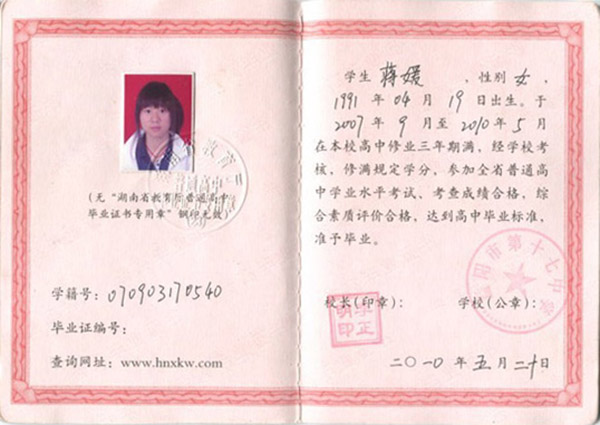 (无“湖南省教育厅普通高中
毕业证书专用章”钢印无效)
学籍号:070903170540
毕业证编号:
查询网址:www.hnxkw.com
学生 蒋媛 ,性别 女 ,
1991 年 04 月 19 日出生。于
2007 年 9 月至 2010 年 5 月
在本校高中修业三年期满,经学校考
核,修满规定学分,参加全省普通高
中学业水平考试、考查成绩合格,综
合素质评价合格,达到高中毕业标准,
准予毕业。
校长(印章): 学校(公章):
阳市第十七中学
二〇一〇 年 五 月 二十 日